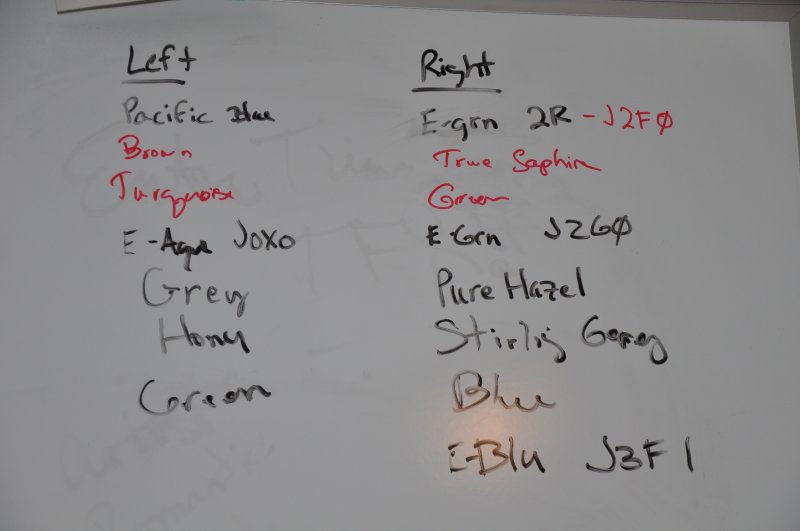 Left
Pacific Blue
Brown
Turquoise
E-Aqua J0X0
Grey
Hony
Green
Right
E-grn 2R - J2FØ
True Saphire
Green
E-Grn J2GØ
Pure Hazel
Stirlig Gerey
Blue
E-Blu J3F1